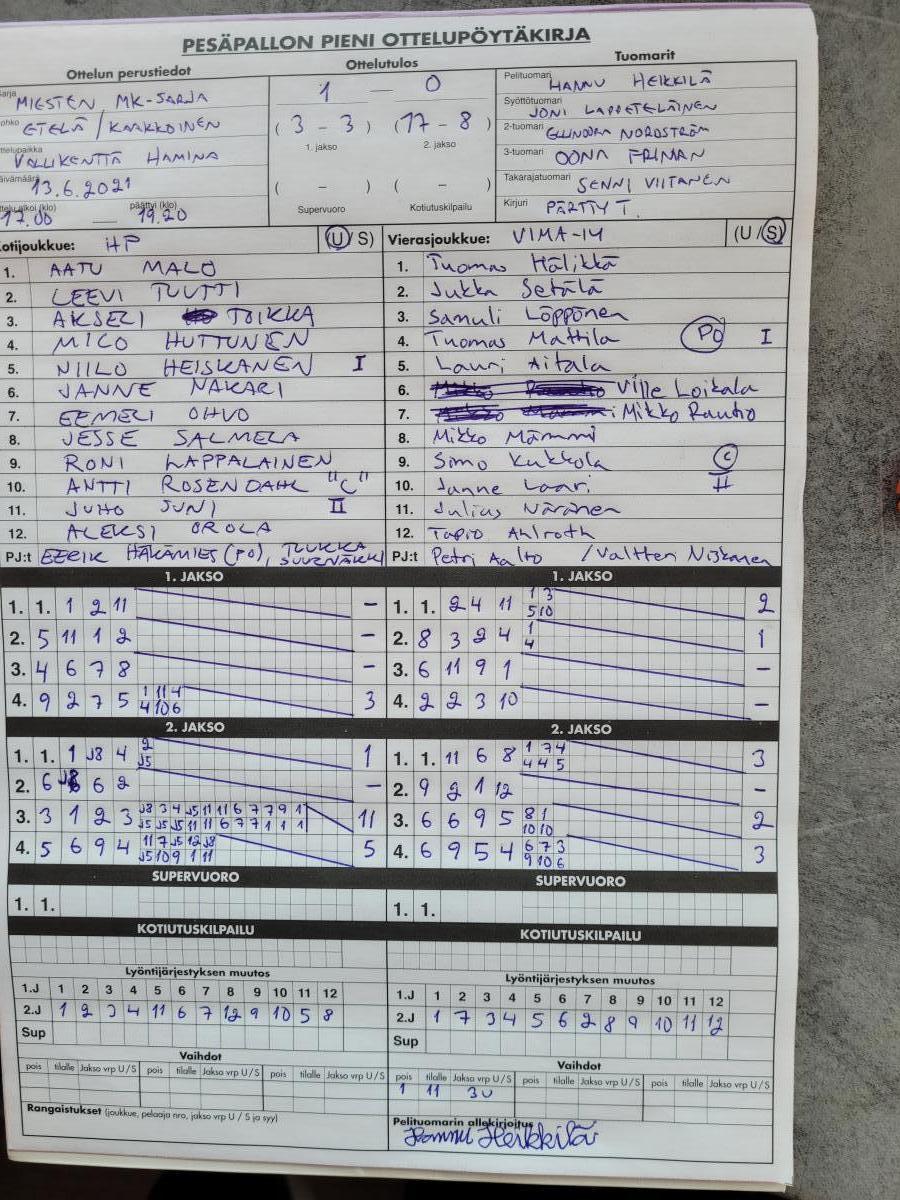 PESÄPALLON PIENI OTTELUPÖYTÄKIRJA
Ottelun perustiedot
MIESTEN MK-SARJA
ETELÄ/KAAKKOINEN
VALLIKENTTÄ HAMINA
13.6.2021
päättyi (klo)
17.00 — 19.20
Ottelutulos
1 — 0
(3 - 3) (17 - 8)
1. jakso 2. jakso
( - ) ( - )
Supervuoro Kotiutuskilpailu
Tuomarit
Pelituomari HANNU HEIKKILÄ
Syöttötuomari JONI LAPPETELÄINEN
2-tuomari NORDSTRÖM
3-tuomari OONA FRIMAN
Takarajatuomari SENNI VIITANEN
Kirjuri PÄRTTY T.
Kotijoukkue: HP (U/S)
1. AATU MALO
2. LEEVI TUUTTI
3. AKSELI TOIKKA
4. MICO HUTTUNEN
5. NIILO HEISKANEN I
6. JANNE NAKARI
7. EEMELI OHVO
8. JESSE SALMELA
9. RONI LAPPALAINEN
10. ANTTI ROSENDAHL "C"
11. JUHO JUNI II
12. ALEKSI OROLA
PJ:t EERIK HÄKÄMIES (PO), TUUKKA SUURNÄKKI
Vierasjoukkue: VIMA-14 (U/S)
1. Tuomas Hälikkä
2. Jukka Setälä
3. Samuli Löppönen
4. Tuomas Mattila PO I
5. Lauri Aitala
6. Ville Loikala
7. Mikko Rautio
8. Mikko Mämmi
9. Simo Kukkola C
10. Janne Laari II
11. Julius Näränen
12. Tapio Ahlroth
PJ:t Petri Aalto / Valtteri Niskanen
1. JAKSO
1. 1. 1 2 11 –
2. 5 11 1 2 –
3. 4 6 7 8 –
4. 9 2 7 5 1 11 4 3
4 10 6
2. JAKSO
1. 1. 1 J8 4 2 1
J5
2. 6 6 2 –
3. 3 1 2 3 J8 3 4 J5 11 11 6 7 7 9 1 11
J5 J5 J5 11 11 6 7 7 1 1 1
4. 5 6 9 4 11 7 J5 12 J8 5
J5 10 9 1 11
SUPERVUORO
1. 1.
KOTIUTUSKILPAILU
1. JAKSO
1. 1. 2 4 11 1 3 2
5 10
2. 8 3 2 4 1 1
4
3. 6 11 9 1 –
4. 2 2 3 10 –
2. JAKSO
1. 1. 11 6 8 1 7 4 3
4 4 5
2. 9 2 1 12 –
3. 6 6 9 5 8 1 2
10 10
4. 6 9 5 4 6 7 3 3
9 10 6
SUPERVUORO
1. 1.
KOTIUTUSKILPAILU
Lyöntijärjestyksen muutos
1.J 1 2 3 4 5 6 7 8 9 10 11 12
2.J 1 2 3 4 11 6 7 12 9 10 5 8
Sup
Vaihdot
pois tilalle Jakso vrp U/S pois tilalle Jakso vrp U/S pois tilalle Jakso vrp U/S
Rangaistukset (joukkue, pelaaja nro, jakso vrp U / S ja syy)
Lyöntijärjestyksen muutos
1.J 1 2 3 4 5 6 7 8 9 10 11 12
2.J 1 7 3 4 5 6 2 8 9 10 11 12
Sup
Vaihdot
pois tilalle Jakso vrp U/S pois tilalle Jakso vrp U/S pois tilalle Jakso vrp U/S
1 11 3U
Pelituomarin allekirjoitus
Hannu Heikkilä